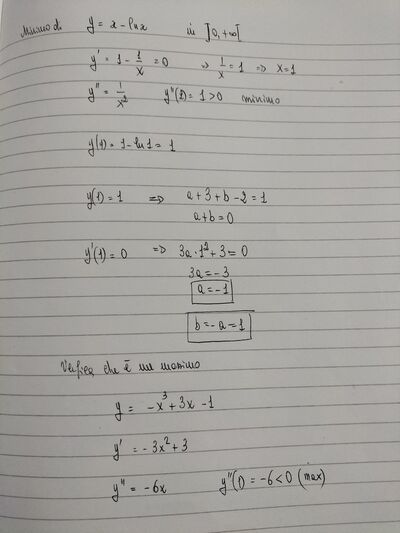 Minimo di y = x - ln x in ]0, +∞[
y' = 1 - 1/x = 0 => 1/x = 1 => x = 1
y'' = 1/x² y''(1) = 1 > 0 minimo
y(1) = 1 - ln 1 = 1
y(1) = 1 => a + 3 + b - 2 = 1
a + b = 0
y'(1) = 0 => 3a · 1² + 3 = 0
3a = -3
a = -1
b = -a = 1
Verifica che è un massimo
y = -x³ + 3x - 1
y' = -3x² + 3
y'' = -6x y''(1) = -6 < 0 (max)